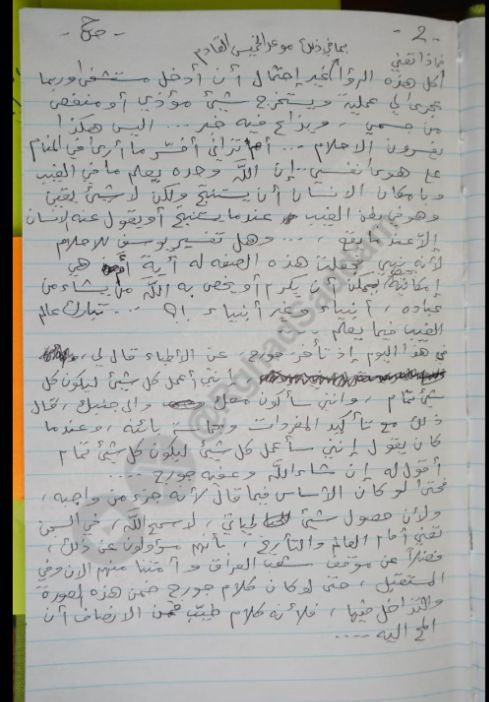 - 2 - - ح -
بما في ذلك موعد الخميس القادم
ماذا تعني
أكل هذه الرؤا غير إحتمال أن أدخل مستشفى اوربما
تجرى لي عملية ويستخرج شيئ مؤذي أو منغص
من جسمي ، ويزاح فيه خير ... اليس هكذا
يفسرون الاحلام ... أم تراني أفسّر ما أرى في المنام
على هوى نفسي .. إن الله وحده يعلم ما في الغيب
وبإمكان الانسان أن يستنتج ولكن لا شيئ يقين
وهو في بطن الغيب عندما يستنتج أو يقول عنه الإنسان
إلاّ عندما يقع ، ... وهل تفسير يوسف للاحلام
لأنه نبي فجعلت هذه الصفه له أية أم هي
إمكانية يمكن أن يكرم أو يخص به الله من يشاء من
عباده ، أنبياء وغير أنبياء ؟! ... تبارك عالم
الغيب فيما يعلم ..
في هذا اليوم إذ تأخر جورج ، عن الأطباء قال لي ،
إنني أعمل كل شيئ ليكون كل
شيئ تمام ، وانني سأكون معك والى جنبك ، قال
ذلك مع تأكيد المفردات بأنه ، وعندما
كان يقول إنني سأعمل كل شيئ ليكون كل شيئ تمام
أقول له إن شاء الله وعونه جورج ...
فحتى لو كان الأساس فيما قال لأنه جزء من واجبه ،
ولأن حصول شيئ لحياتي ، لا سمح الله ، في السجن
تعني أمام العالم والتأريخ ، بأنهم مسؤولون عن ذلك ،
فضلاً عن موقف شعب العراق وأمتنا منهم الآن وفي
المستقبل ، حتى لو كان كلام جورج ضمن هذه الصورة
والتداخل فيها ، فلأنه كلام طيّب فمن الانصاف أن
اليه ....
@RghadSaddam